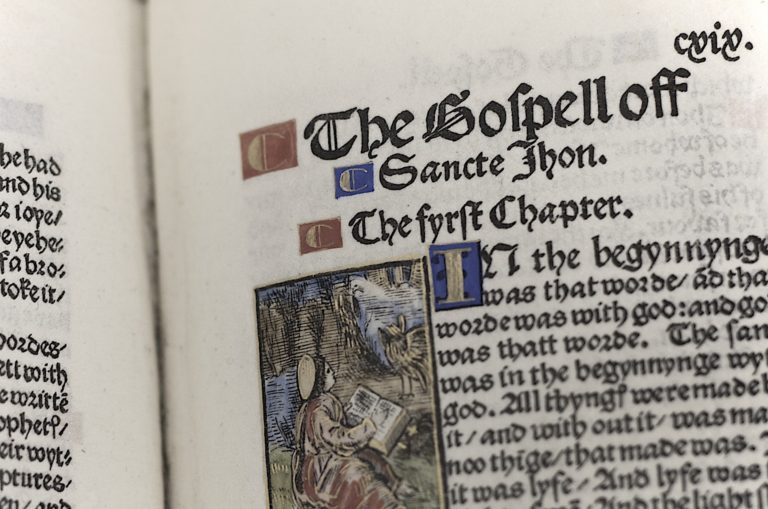 he had
nd his
ioye/
f a bro:
toke it/
ordes
ett with
e writtē
eir wyt:
ptures/
en/ and
cxix.
C The Goſpell off
C Sancte Jhon.
C The fyrſt Chapter.
IN the begynnynge
was that worde/ ād tha
worde was with god: and go
was thatt worde. The ſam
was in the begynnynge wyt
god. All thyngſ were made b
it/ and with out it/ was ma
noo thīge/ that made was.
it was lyfe/ And lyfe was
And the light ſ